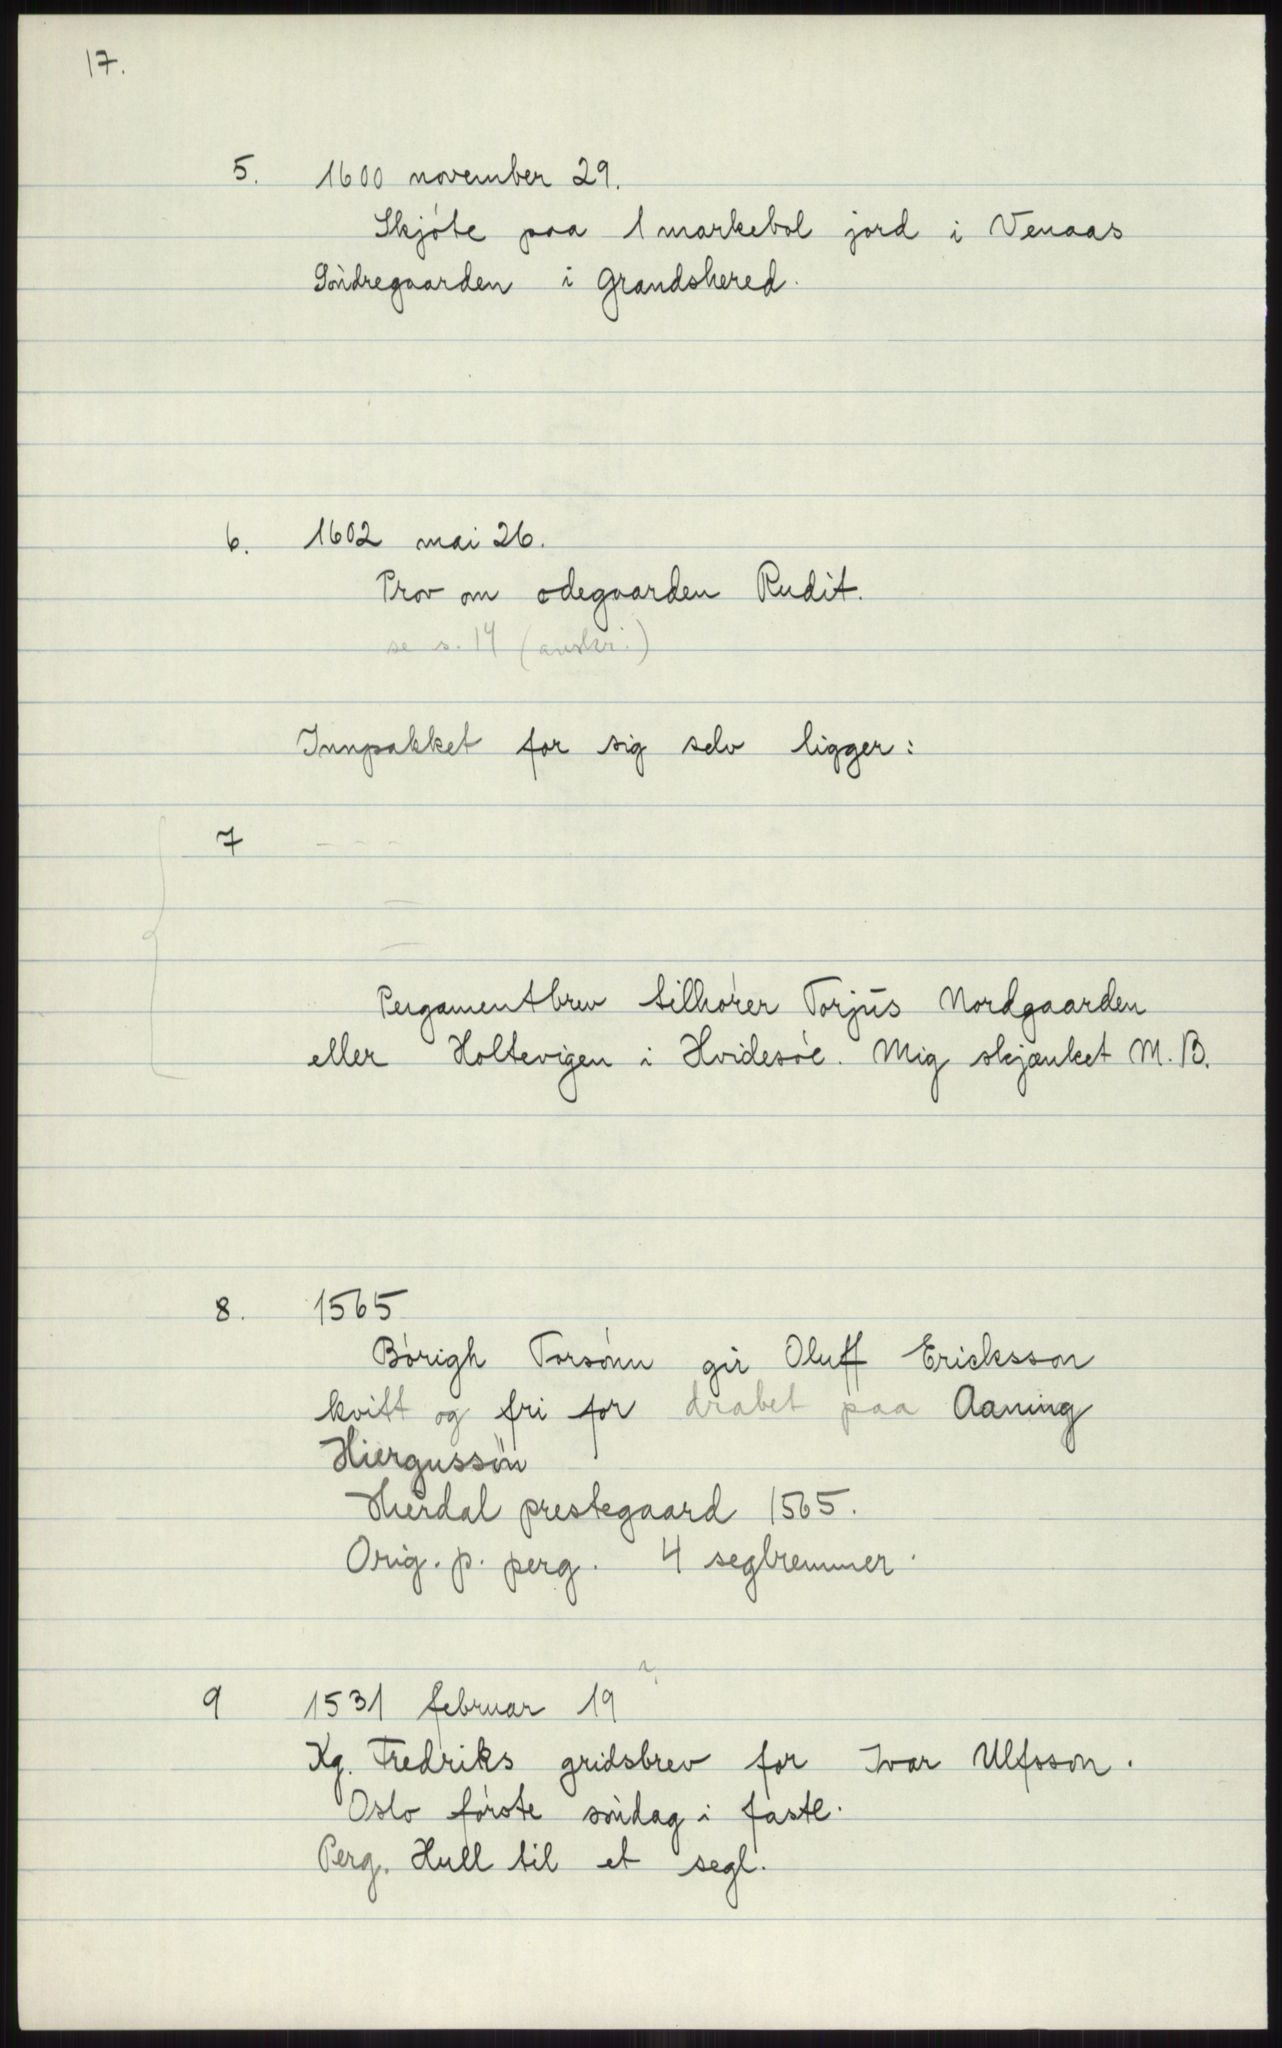 17.
5. 1600 november 29.
Skjóte paa 1 markebol jord i Venaas
Söndregaarden i Grandshered.
6. 1602 mai 26.
Prov om odegaarden Rudit.
se s. 14 (avskr.)
Innpakket for sig selv ligger:
7 - - -
Pergamentbrev tilhórer Torjus Nordgaarden
eller Holtevigen i Hvidesóe. Mig skjænket M.B.
8. 1565
Bórigh Torsónn gir Oluff Ericksson
kvitt og fri for drabet paa Aaning
Hiergussön
Hierdal prestegaard 1565.
Orig. p. perg. 4 seglremmer.
9 1531 februar 19 ?
Kg. Fredriks gridsbrev for Ivar Ulfsson.
Oslo fórste söndag i faste.
Perg. Hull til et segl.